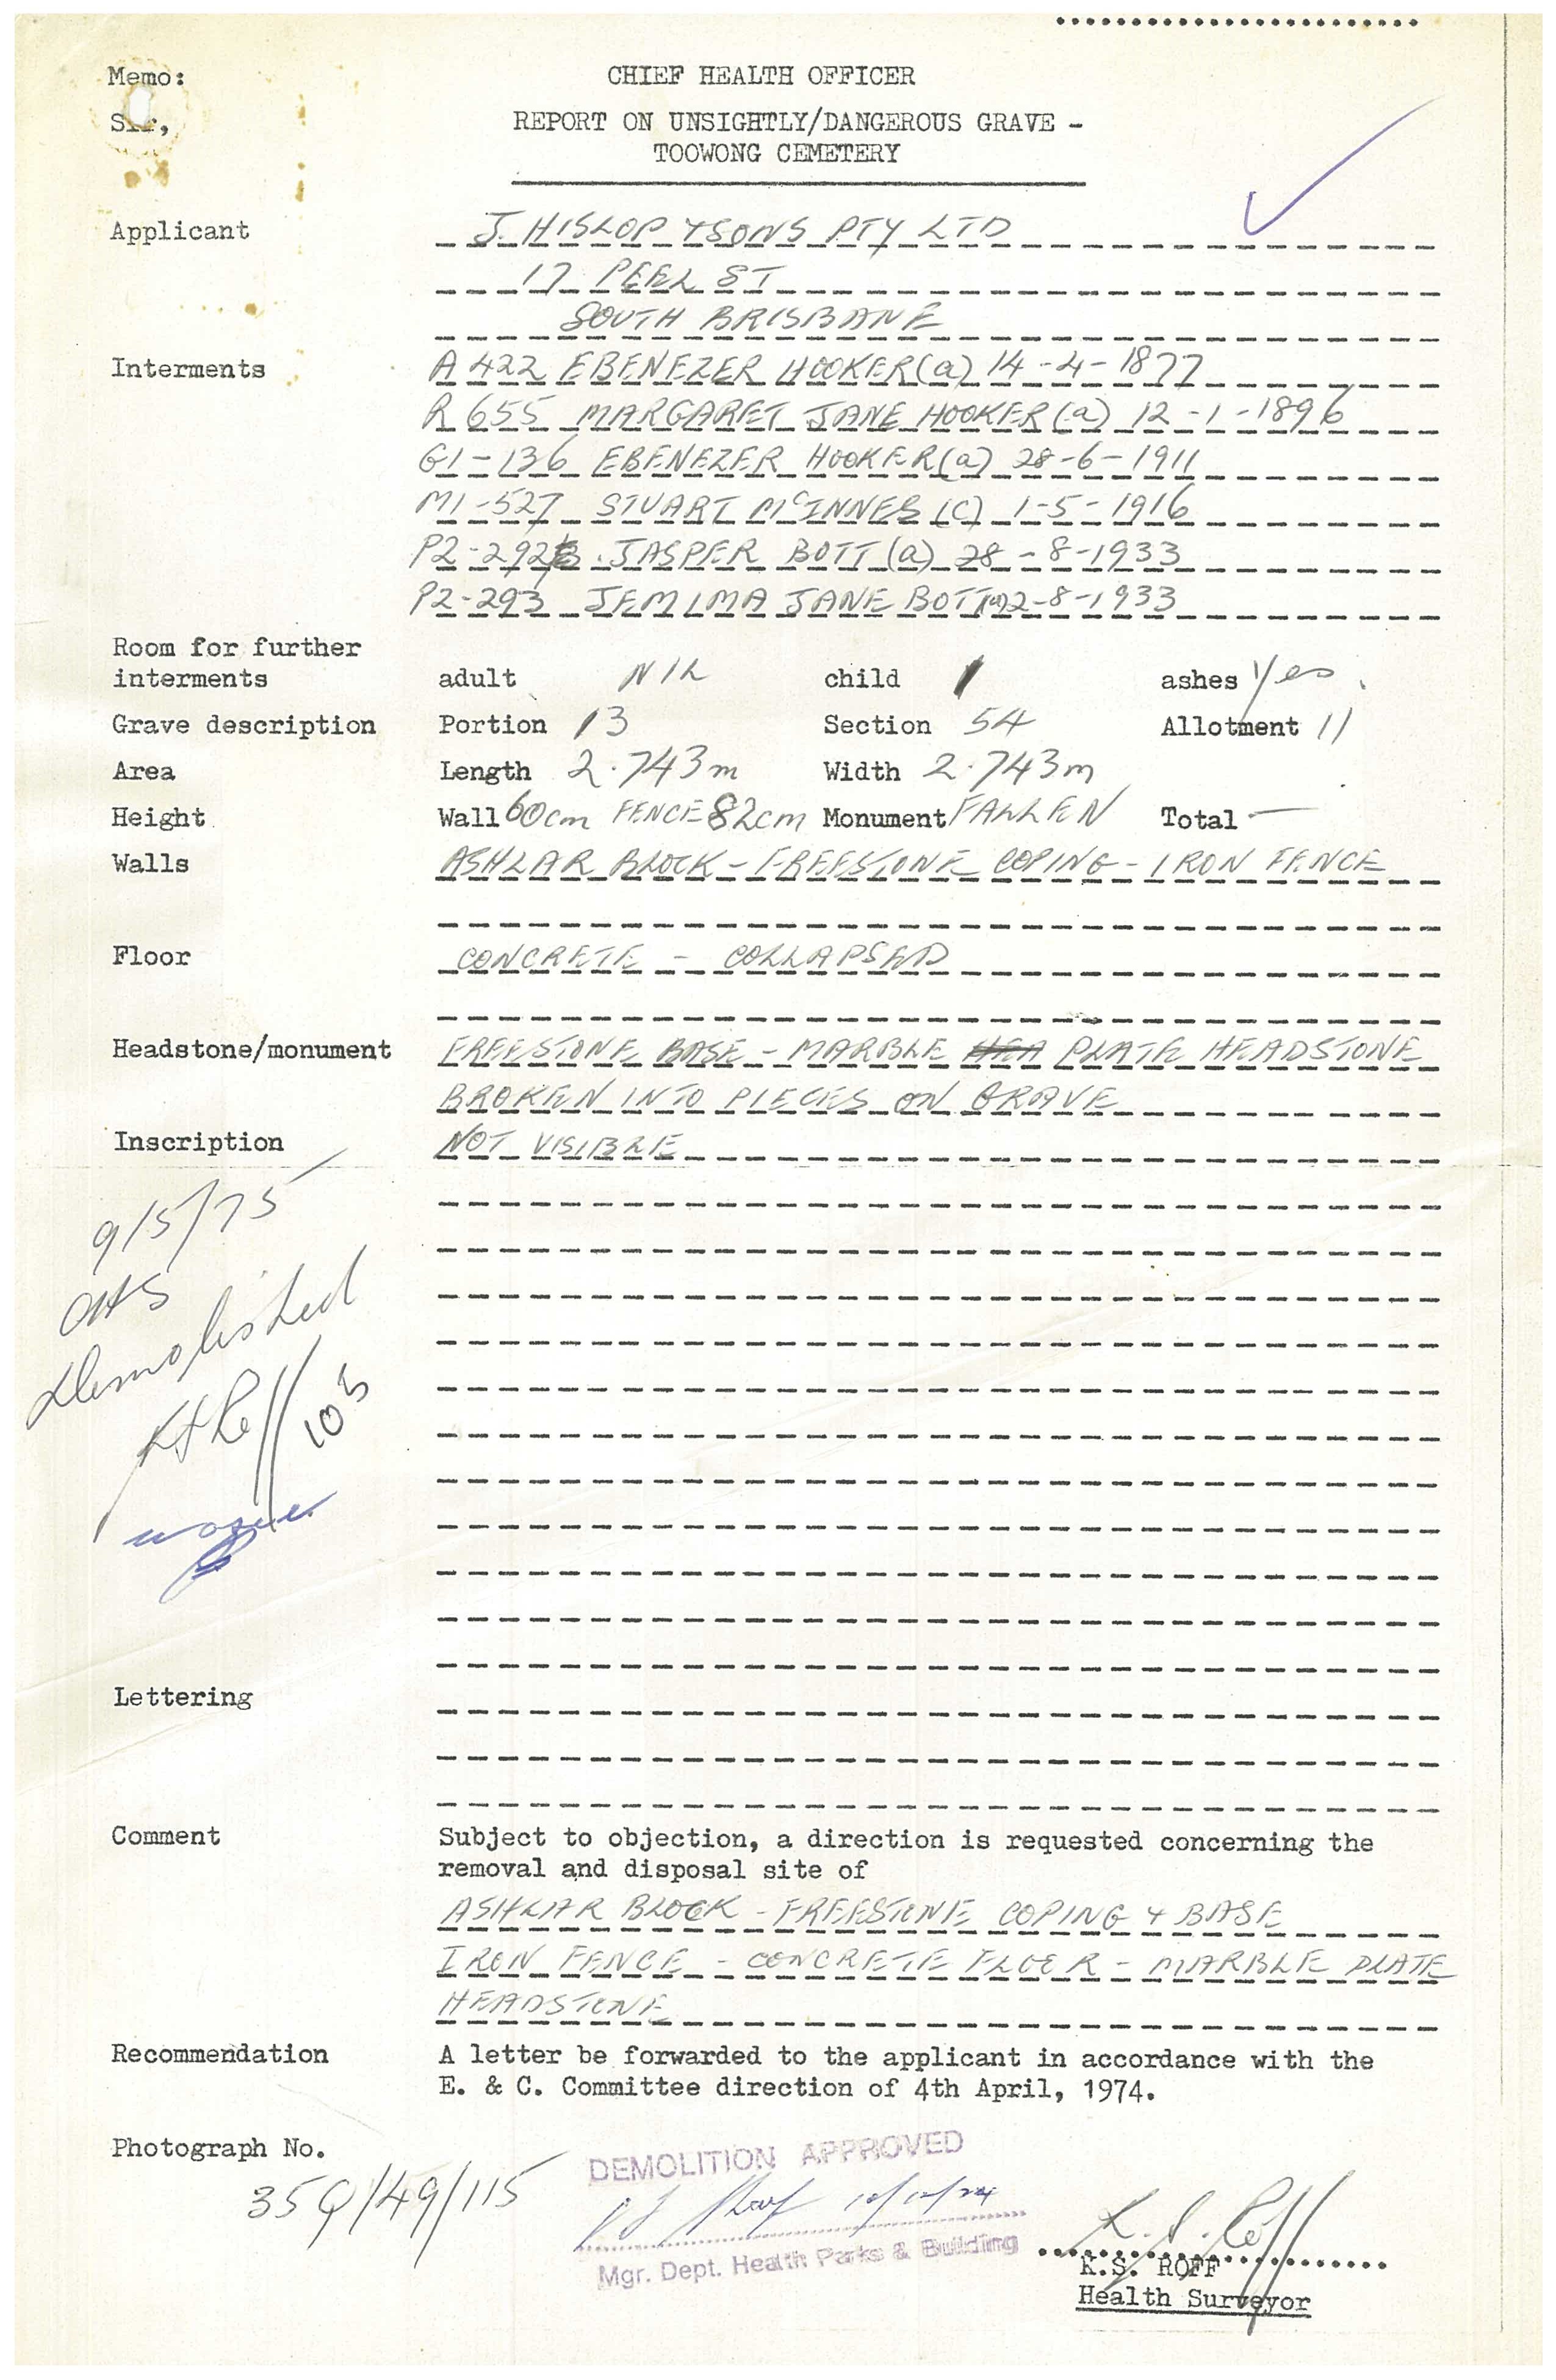 Memo:
CHIEF HEALTH OFFICER
Sir,
REPORT ON UNSIGHTLY/DANGEROUS GRAVE -
TOOWONG CEMETERY
Applicant J. HISLOP & SONS PTY LTD
17 PEEL ST
SOUTH BRISBANE
Interments A 422 EBENEZER HOOKER (a) 14-4-1877
R 655 MARGARET JANE HOOKER (a) 12-1-1896
G1-136 EBENEZER HOOKER (a) 28-6-1911
M1-527 STUART McINNES (C) 1-5-1916
P2-292 JASPER BOTT (a) 28-8-1933
P2-293 JEMIMA JANE BOTT (a) 2-8-1933
Room for further
interments adult NIL child 1 ashes Yes.
Grave description Portion 13 Section 54 Allotment 11
Area Length 2.743m Width 2.743m
Height Wall 60cm FENCE 82cm Monument FALLEN Total —
Walls ASHLAR BLOCK - FREESTONE COPING - IRON FENCE
Floor CONCRETE - COLLAPSED
Headstone/monument FREESTONE BASE - MARBLE HEA PLATE HEADSTONE
BROKEN INTO PIECES ON GRAVE
Inscription NOT VISIBLE
9/5/75
CHS
Demolished
KSRoff
103
Lettering
Comment Subject to objection, a direction is requested concerning the
removal and disposal site of
ASHLAR BLOCK - FREESTONE COPING & BASE
IRON FENCE - CONCRETE FLOOR - MARBLE PLATE
HEADSTONE
Recommendation A letter be forwarded to the applicant in accordance with the
E. & C. Committee direction of 4th April, 1974.
Photograph No.
35Q/49/115
DEMOLITION APPROVED
Mgr. Dept. Health Parks & Building
K.S. Roff
K.S. ROFF
Health Surveyor